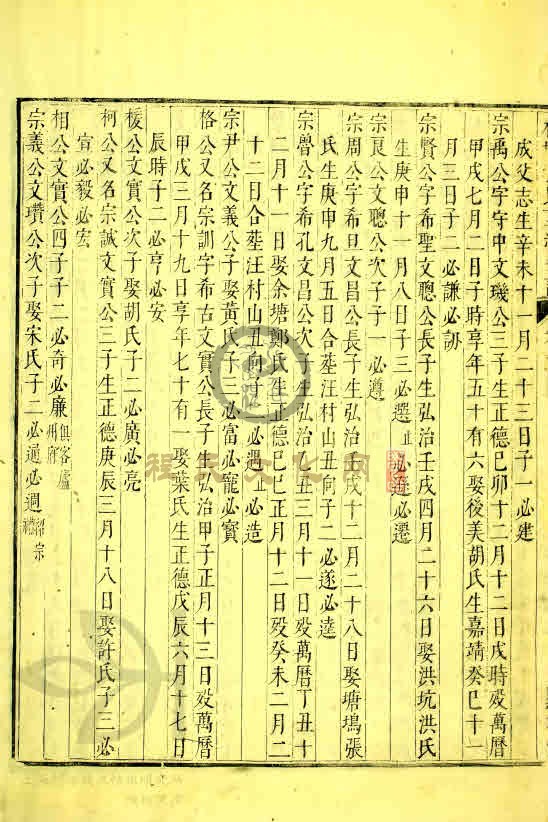 成父志生辛未十一月二十三日子一必建
宗禹公字守中文璣公三子生正德巳卯十二月十二日戌時殁萬曆
甲戌七月二日子時享年五十有六娶後美胡氏生嘉靖癸巳十一
月三日子二必謙必訓
宗賢公字希聖文聰公長子生弘治壬戌四月二十六日娶洪坑洪氏
生庚申十一月八日子三必選止必遜必遷
宗良公文聰公次子子一必遵
宗周公字希旦文昌公長子生弘治戌十二月二十八日娶塘塢張
氏生庚申九月五日合塟汪村山丑向子二必遂必達
宗魯公字希孔文昌公次子生弘治七丑三月十一日殁萬曆丁丑十
二月十一日娶余塘鄭氏生正德巳巳正月十二日殁癸未二月二
十二日合塟汪村山丑向子二必遇止必造
宗尹公文義公子娶黃氏子三必富必寵必寶
格公又名宗訓字希古文實公長子生弘治甲子正月十三日殁萬曆
甲戌三月十九日享年七十有一娶葉氏生正德戊辰六月十七日
辰時子二必亨必安
楥公文實公次子娶胡氏子二必廣必亮
柯公又名宗誠文實公三子生正德庚辰三月十八日娶許氏子三必
宜必毅必宏
相公文實公四子子二必奇必廉俱客廬州府
宗義公文瓚公次子娶宋氏子二必通必週紹宗禮
程氏文化网